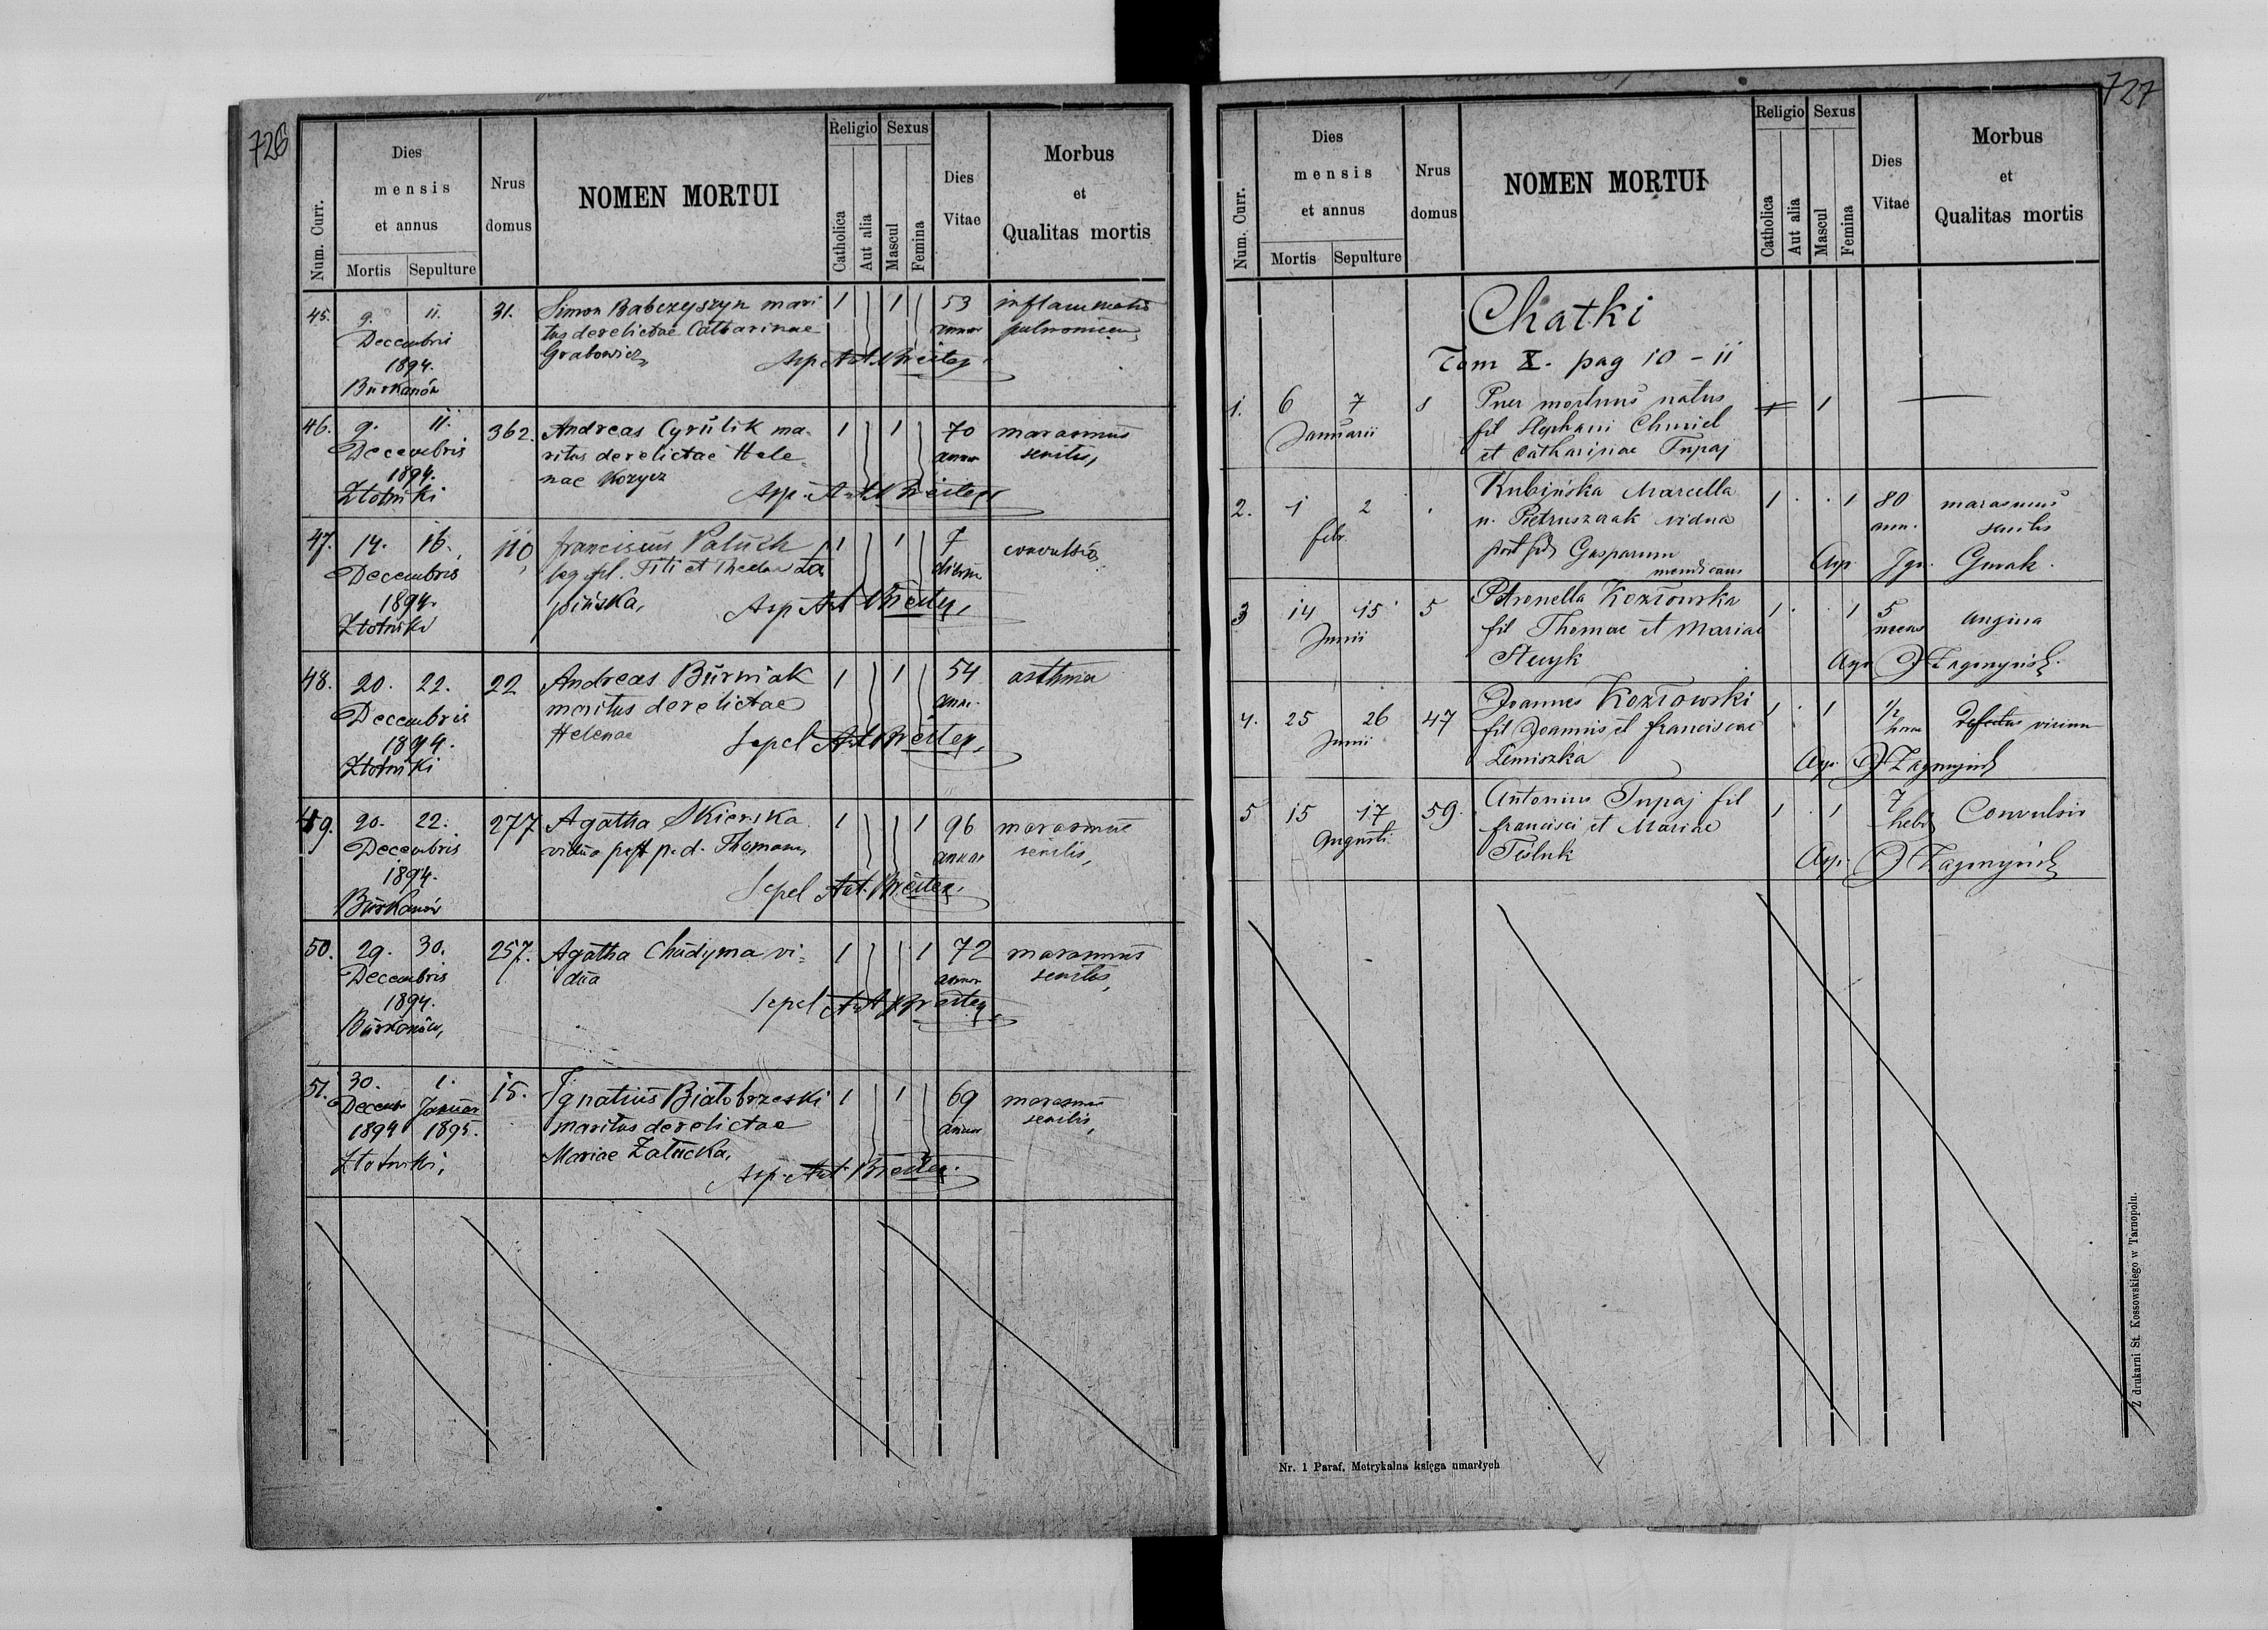 726
Num. Curr.
Dies
mensis
et annus
Mortis
Sepulture
Nrus
domus
NOMEN MORTUI
Religio
Catholica
Aut alia
Sexus
Mascul
Femina
Dies
Vitae
Morbus
et
Qualitas mortis
45. 9. 11. 31. Simon Babczyszyn mari 1 1 53 inflammatio
Decembris tus derelictae Catharinae annor pulmonum
1894. Grabowicz Asp. Ant. Breiter
Burkanów
46. 9. 11. 362. Andreas Cyrulik ma- 1 1 70 marasmus
Decembris ritus derelictae Hele- annor senilis,
1894. nae Korycz Asp. Ant. Breiter
Złotniki
47. 14. 16. 110 franciscus Paluch 1 1 7 convulsio
Decembris leg. fil. Titi et Theclae Ła diebus
1894. pińska, Asp. Ant Breiter,
Złotniki
48. 20. 22. 22 Andreas Burniak 1 1 54 asthma
Decembris maritus derelictae ann.
1894. Helenae Sepel Ant Breiter,
Złotniki
49. 20. 22. 277 Agatha Skierska 1 1 96 marasmus
Decembris vidua post p. d. Thomam, annor senilis,
1894. Sepel Ant. Breiter.
Burkanów
50. 29. 30. 257. Agatha Chudyma vi- 1 1 72 marasmus
Decembris dua annor senilis,
1894. Sepel Ant Breiter,
Burkanów,
51. 30. 1. 15. Ignatius Białobrzeski 1 1 69 marasmus
Decem Januar maritus derelictae annor senilis,
1894 1895. Mariae Załucka,
Złotniki, Asp. Ant. Breiter.
727
Num. Curr.
Dies
mensis
et annus
Mortis
Sepulture
Nrus
domus
NOMEN MORTUI
Religio
Catholica
Aut alia
Sexus
Mascul
Femina
Dies
Vitae
Morbus
et
Qualitas mortis
Chatki
Tom X. pag 10 - 11
1. 6 7 8 Puer mortuus natus 1 1 —
Januarii fil Stephani Chmiel
et Catharinae Tupaj
2. 1 2 Kubińska Marcella 1 1 80 marasmus
febr. n. Pietruszczak vidua ann. senilis
post Gasparum
mendicans Asp. Ign. Gurak.
3 14 15 5 Petronella Kozłowska 1 1 5 angina
Junii fil Thomae et Mariae
Stecyk
4. 25 26 47 Joannes Kozłowski 1 1 1/2 Defectus virium
Junii fil Joannis et franciscae hora
Lemiszka
5 15 17 59. Antonius Tupaj fil 1 1 7 Convulsio
Augusti francisci et Mariae hebd
Tesluk
Nr. 1 Paraf. Metrykalna księga umarłych
Z drukarni St. Kossowskiego w Tarnopolu.